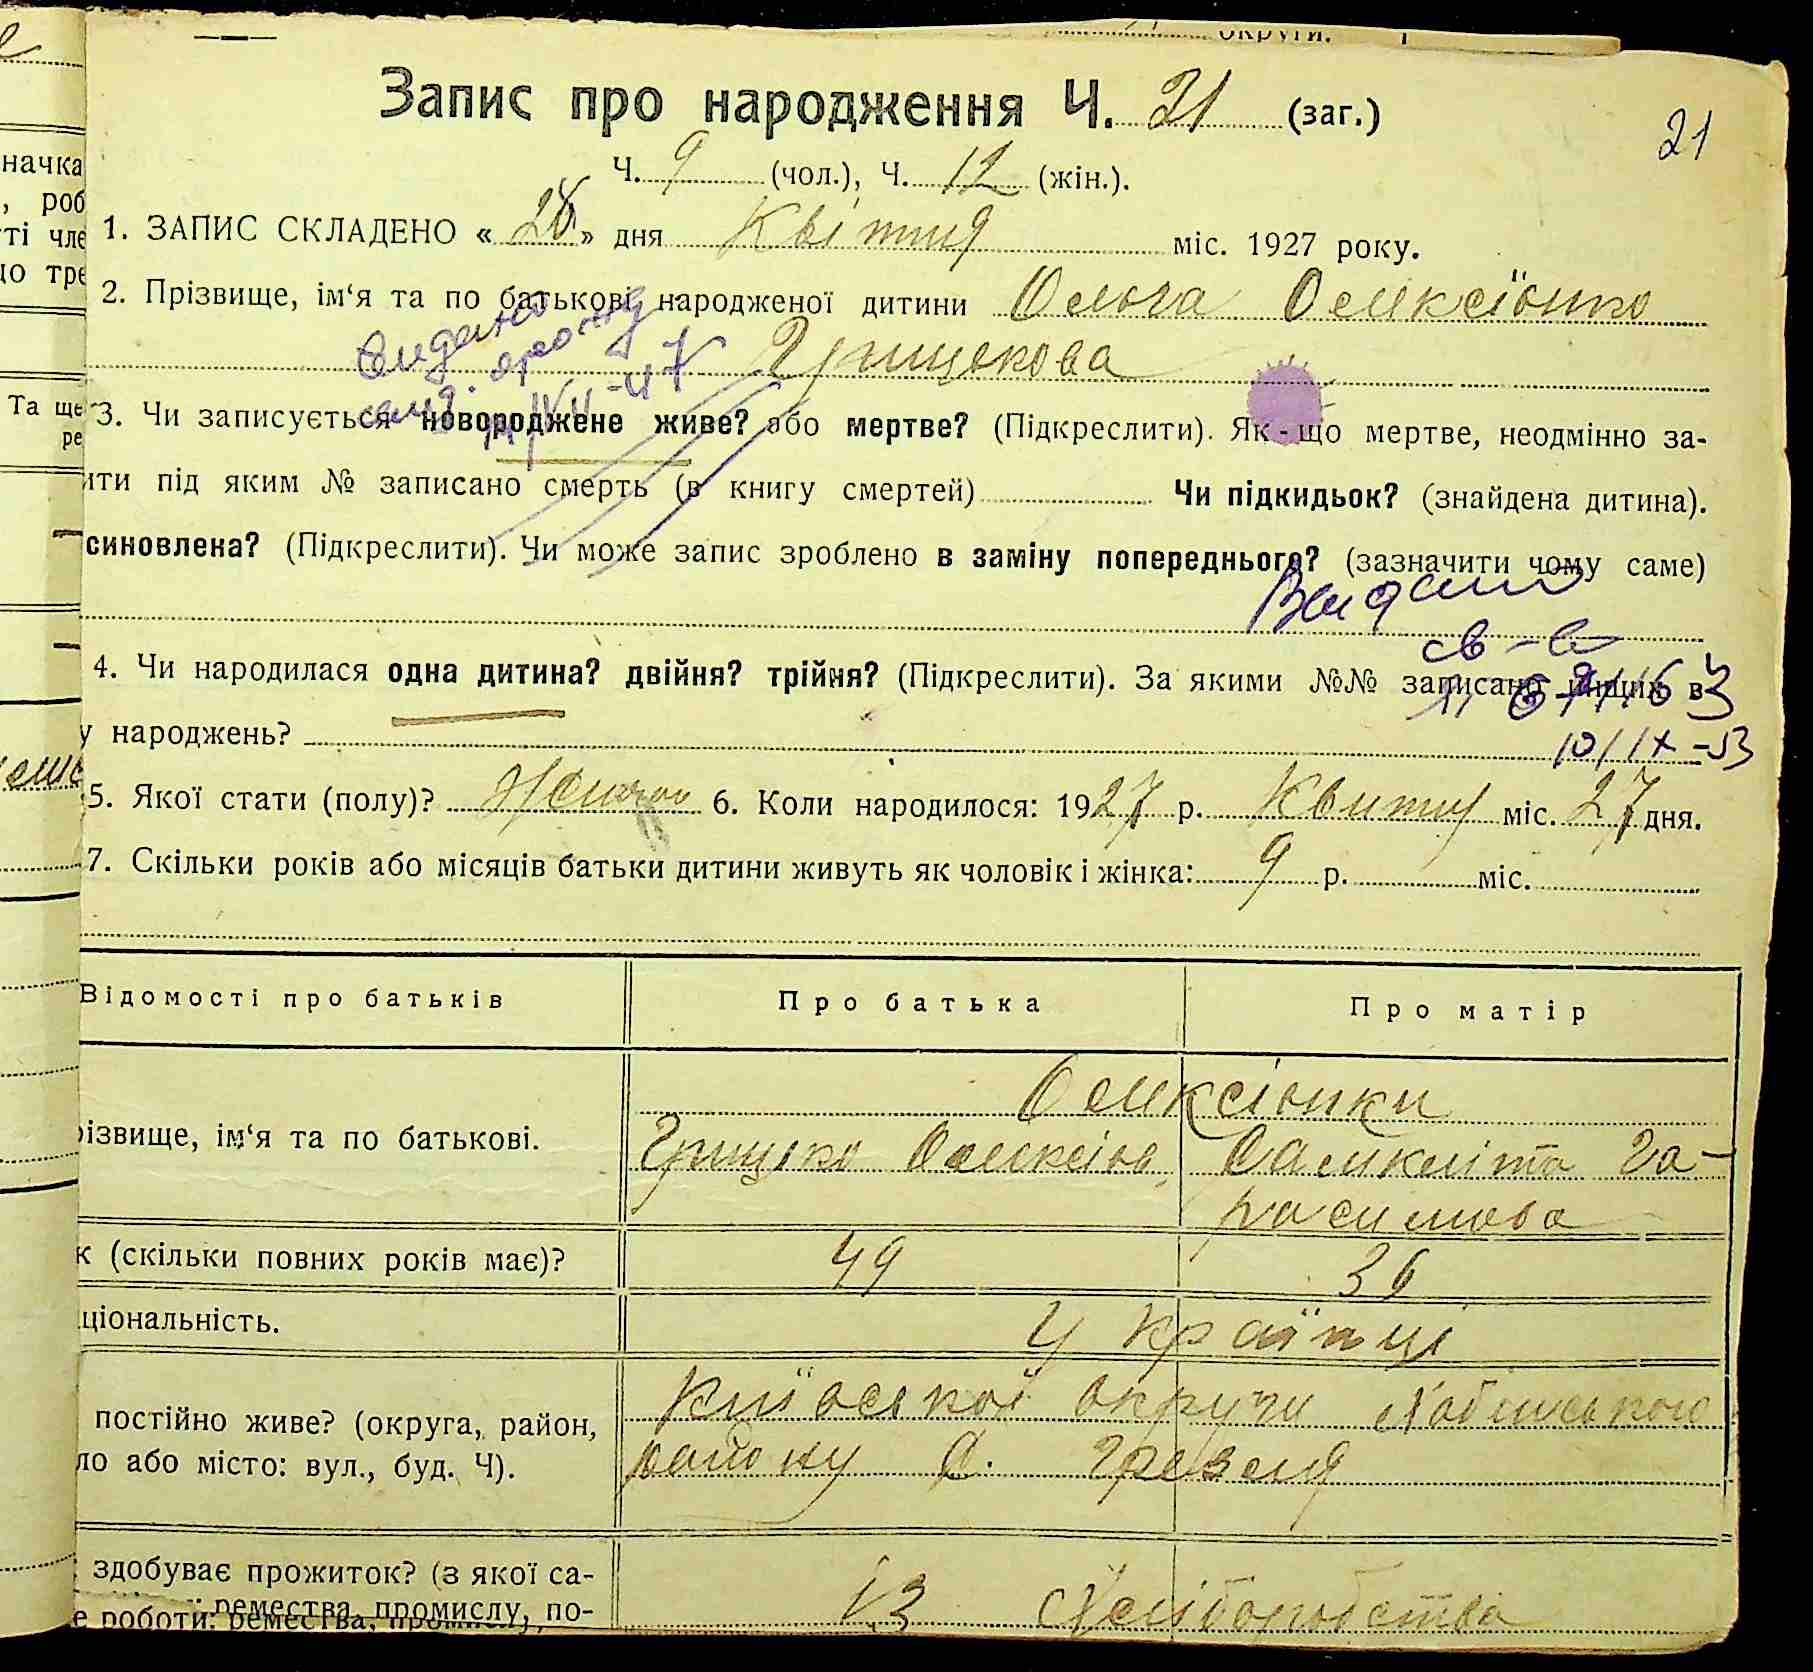 округи.
Запис про народження Ч. 21 (заг.)
21
Ч. 9 (чол.), Ч. 12 (жін.).
1. ЗАПИС СКЛАДЕНО « 28 » дня Квітня міс. 1927 року.
2. Прізвище, ім'я та по батькові народженої дитини Ольга Олексієнко
Грицькова
Видано
3. Чи записується новороджене живе? або мертве? (Підкреслити). Як-що мертве, неодмінно за-
ити під яким № записано смерть (в книгу смертей) Чи підкидьок? (знайдена дитина).
синовлена? (Підкреслити). Чи може запис зроблено в заміну попереднього? (зазначити чому саме)
Видано
св-во
4. Чи народилася одна дитина? двійня? трійня? (Підкреслити). За якими №№ записано інших в
у народжень?
10/IX-53
5. Якої стати (полу)? Жіночої 6. Коли народилося: 1927 р. Квітня міс. 27 дня.
7. Скільки років або місяців батьки дитини живуть як чоловік і жінка: 9 р. міс.
Відомості про батьків Про батька Про матір
Олексієнки
різвище, ім'я та по батькові. Грицько Олексієв. Га-
расимова
к (скільки повних років має)? 49 36
ціональність. Українці
постійно живе? (округа, район, Київської округи Хабенського
ло або місто: вул., буд. Ч). району с. Грезля
здобуває прожиток? (з якої са-
ремества, промислу, по- із Хліборобства
е роботи: ремества, промислу,
начка
, роб
ті чле
цо тре
Та ще
ре